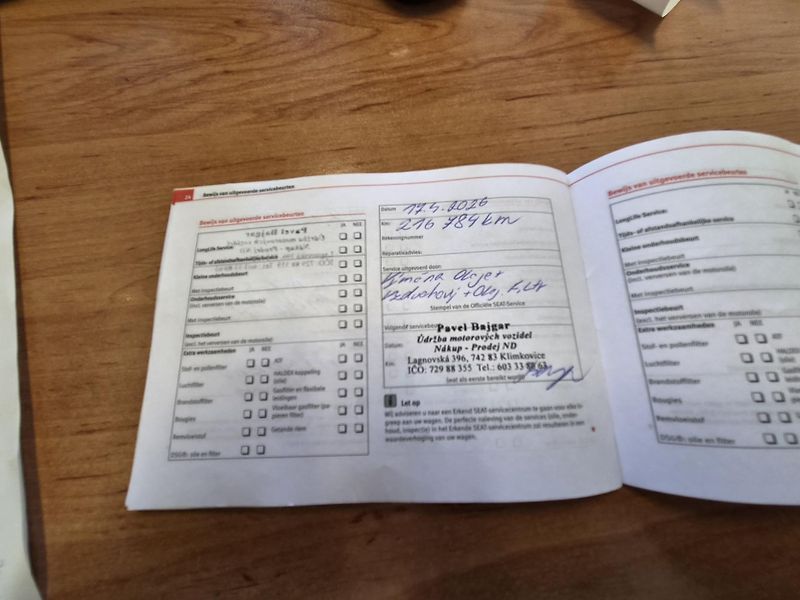 24 Bewijs van uitgevoerde servicebeurten
Bewijs van uitgevoerde servicebeurten
JA NEE
LongLife Service:
Tijds- of afstandsafhankelijke service
Kleine onderhoudsbeurt
Met inspectiebeurt
Onderhoudsservice
(incl. verversen van de motorolie)
Met inspectiebeurt
Inspectiebeurt
(excl. het verversen van de motorolie)
Extra werkzaamheden JA NEE JA NEE
Stof- en pollenfilter
ATF
Luchtfilter
HALDEX koppeling
(olie)
Brandstoffilter
Gasfilter en flexibele
leidingen
Bougies
Vloeibaar gasfilter (pa-
pieren filter)
Remvloeistof
Getande riem
DSG®: olie en filter
Datum 17.4.2026
Km: 216 784 km
Rekeningnummer
Reparatieadvies:
Service uitgevoerd door:
Výměna Oleje +
Vzduchový + Olej. Filtr
Stempel van de Officiële SEAT-Service
Volgende servicebeurt
Pavel Bajgar
Datum:
Údržba motorových vozidel
Nákup - Prodej ND
Km:
Lagnovská 396, 742 83 Klimkovice
IČO: 729 88 355 Tel.: 603 33 88 63
(wat als eerste bereikt wordt)
Let op
Wij adviseren u naar een Erkend SEAT-servicecentrum te gaan voor elke in-
greep aan uw wagen. De perfecte naleving van de services (olie, onder-
houd, inspectie) in het Erkende SEAT-servicecentrum zal resulteren in een
waardeverhoging van uw wagen.
Bewijs van uitgevoerde servicebeurten
LongLife Service:
Tijds- of afstandsafhankelijke service
Kleine onderhoudsbeurt
Met inspectiebeurt
Onderhoudsservice
(incl. verversen van de motorolie)
Met inspectiebeurt
Inspectiebeurt
(excl. het verversen van de motorolie)
Extra werkzaamheden JA NEE
Stof- en pollenfilter
Luchtfilter
Brandstoffilter
Bougies
Remvloeistof
DSG®: olie en filter